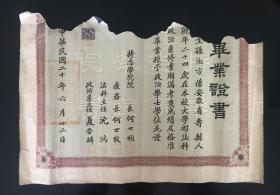 畢業證書
生孫洪方係安徽省壽縣人
現年二十四歲在本校大學部法科
政治系修業期滿考查成績及格准
予畢業授予政治學士學位此證
持志學院院長何世楨
教務長何世枚
法科主任沈鴻
政治系主任夏晉麟
中華民國二十年六月廿二日